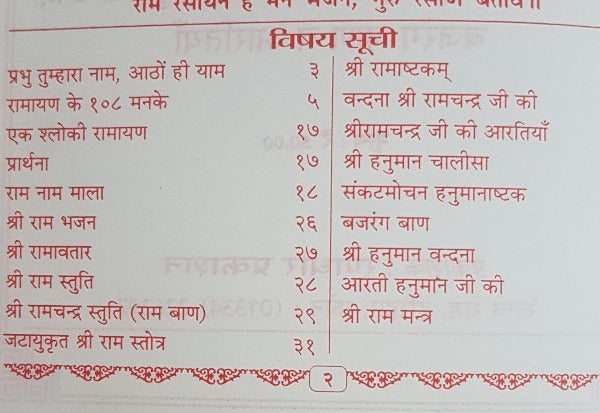 राम रसायन है मन भजन, गुरु
विषय सूची
प्रभु तुम्हारा नाम, आठों ही याम ३
रामायण के १०८ मनके ५
एक श्लोकी रामायण १७
प्रार्थना १७
राम नाम माला १८
श्री राम भजन २६
श्री रामावतार २७
श्री राम स्तुति २८
श्री रामचन्द्र स्तुति (राम बाण) २९
जटायुकृत श्री राम स्तोत्र ३१
श्री रामाष्टकम्
वन्दना श्री रामचन्द्र जी की
श्रीरामचन्द्र जी की आरतियाँ
श्री हनुमान चालीसा
संकटमोचन हनुमानाष्टक
बजरंग बाण
श्री हनुमान वन्दना
आरती हनुमान जी की
श्री राम मन्त्र
२